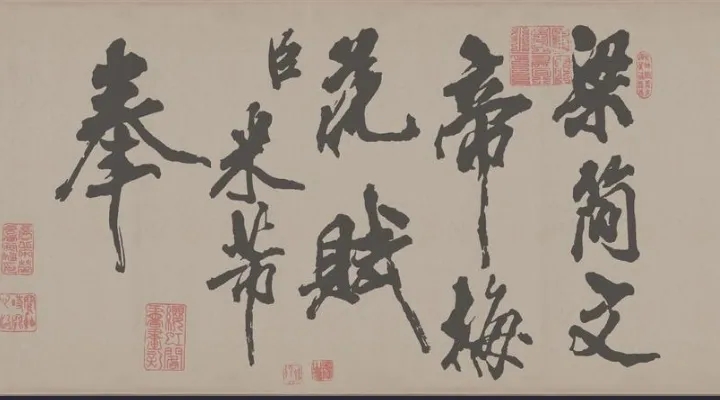 梁简文
帝梅
花赋
臣米芾
奉